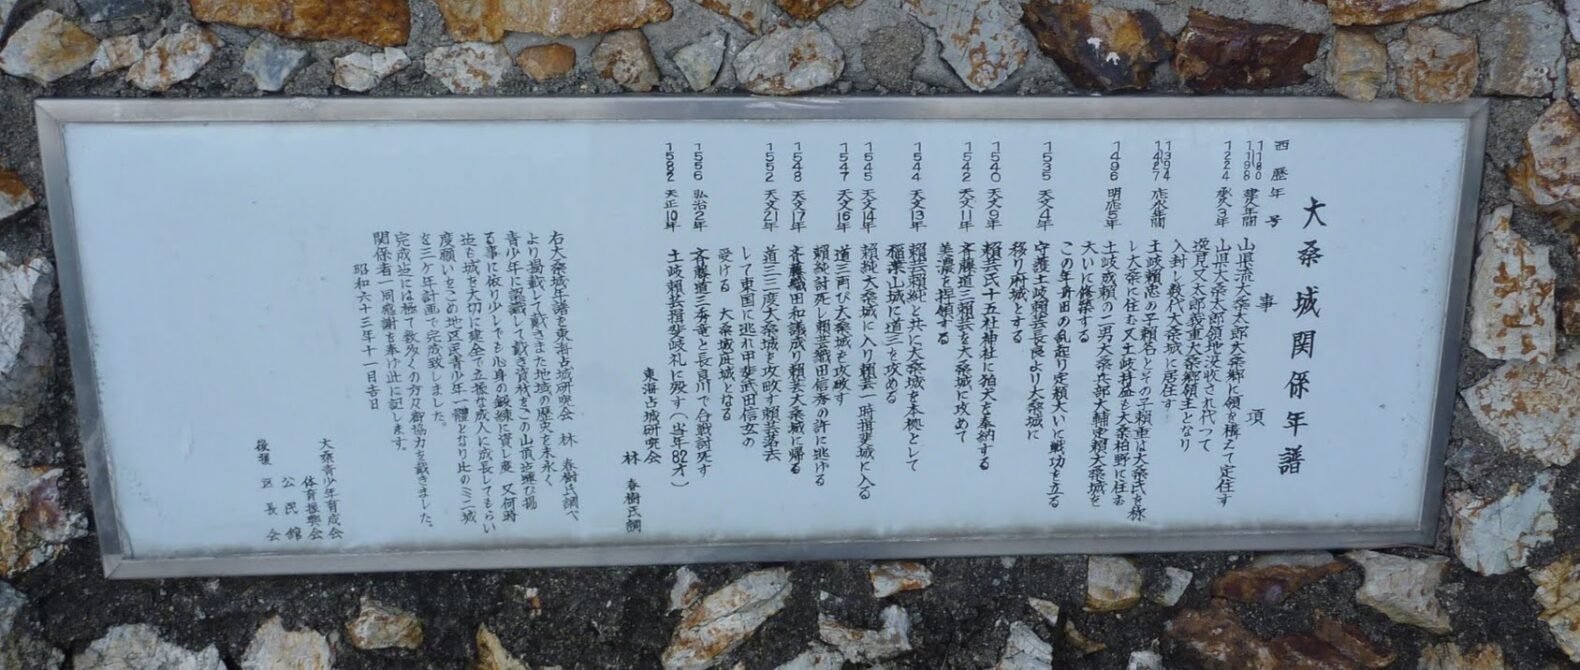 大桑城関係年譜
西歴年号 事項
1180 1198 建久年間 山県流大桑太郎大桑郷に領を構へて定住す
1224 承久3年 山県大桑太郎領地没収され代って
逸見又太郎義重大桑郷領主となり
入封し数代大桑城に居住す
1394 1427 応永年間 土岐頼忠の子頼名とその子頼重は大桑氏を称
し大桑に住む又土岐持益も大桑柏野に住む
1496 明応5年 土岐成頼の二男大桑兵部大輔定頼大桑城を
大いに修築する
この年舟田の乱起り定頼大いに戦功を立る
1535 天文4年 守護土岐頼芸長良より大桑城に
移り府城とする
1540 天文9年 頼芸氏十五社神社に狛犬を奉納する
1542 天文11年 斉藤道三頼芸を大桑城に攻めて
美濃を押領する
1544 天文13年 頼芸頼純と共に大桑城を本拠として
稲葉山城に道三を攻める
1545 天文14年 頼純大桑城に入り頼芸一時揖斐城に入る
1547 天文16年 道三再び大桑城を攻めす
頼純討死し頼芸織田信秀の許に逃げる
1548 天文17年 斉藤織田和議成り頼芸大桑城に帰る
1552 天文21年 道三三度大桑城を攻め頼芸落去
して東国に逃れ甲斐武田信玄の
受ける 大桑城廃城となる
1556 弘治2年 斉藤道三斉竜と長良川で合戦討死す
1582 天正10年 土岐頼芸揖斐岐礼に歿す(当年82才)
東海古城研究会
林 春樹氏調
右大桑城年譜を東海古城研究会 林 春樹氏調べ
より掲載して戴きました地域の歴史を末永く
青少年に認識して戴き資材をこの山頂迄運び揚
る事に依り少しでも心身の鍛練に資し度 又何時
迄も城を大切に健全で立派な成人に成長してもらい
度願いをこめ地区民青少年一体となり此のミニ城
を三ケ年計画で完成致しました。
完成迄には極て数多くの方々御協力を戴きました、
関係者一同感謝を奉げ此に記します。
昭和六十三年十一月吉日
大桑青少年育成会
体育振興会
公民館
後援 区長会